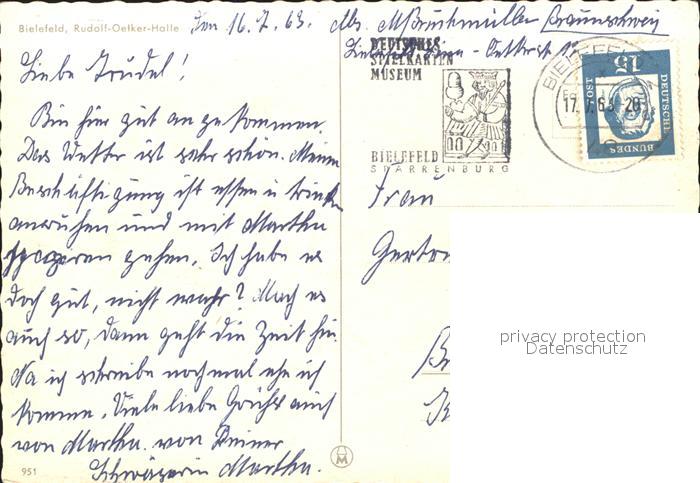 Bielefeld, Rudolf-Oetker-Halle
Den 16.7.63.
Liebe Trudel!
Bin hier gut angekommen.
Das Wetter ist sehr schön. Meine
Beschäftigung ist essen u trinken
ausruhen und mit Martha
spazieren gehen. Ich habe es
doch gut, nicht wahr? Mach es
auch so, dann geht die Zeit hin.
Na ich schreibe nochmal ehe ich
komme. Viele liebe Grüße auch
von Martha. von Deiner
Schwägerin Martha.
951
Abs.
Braunschweig
DEUTSCHES
SPIELKARTEN
MUSEUM
BIELEFELD
SPARRENBURG
BIELEFELD
17.7.63-20
15
DEUTSCHE
BUNDES
POST
Frau
privacy protection
Datenschutz